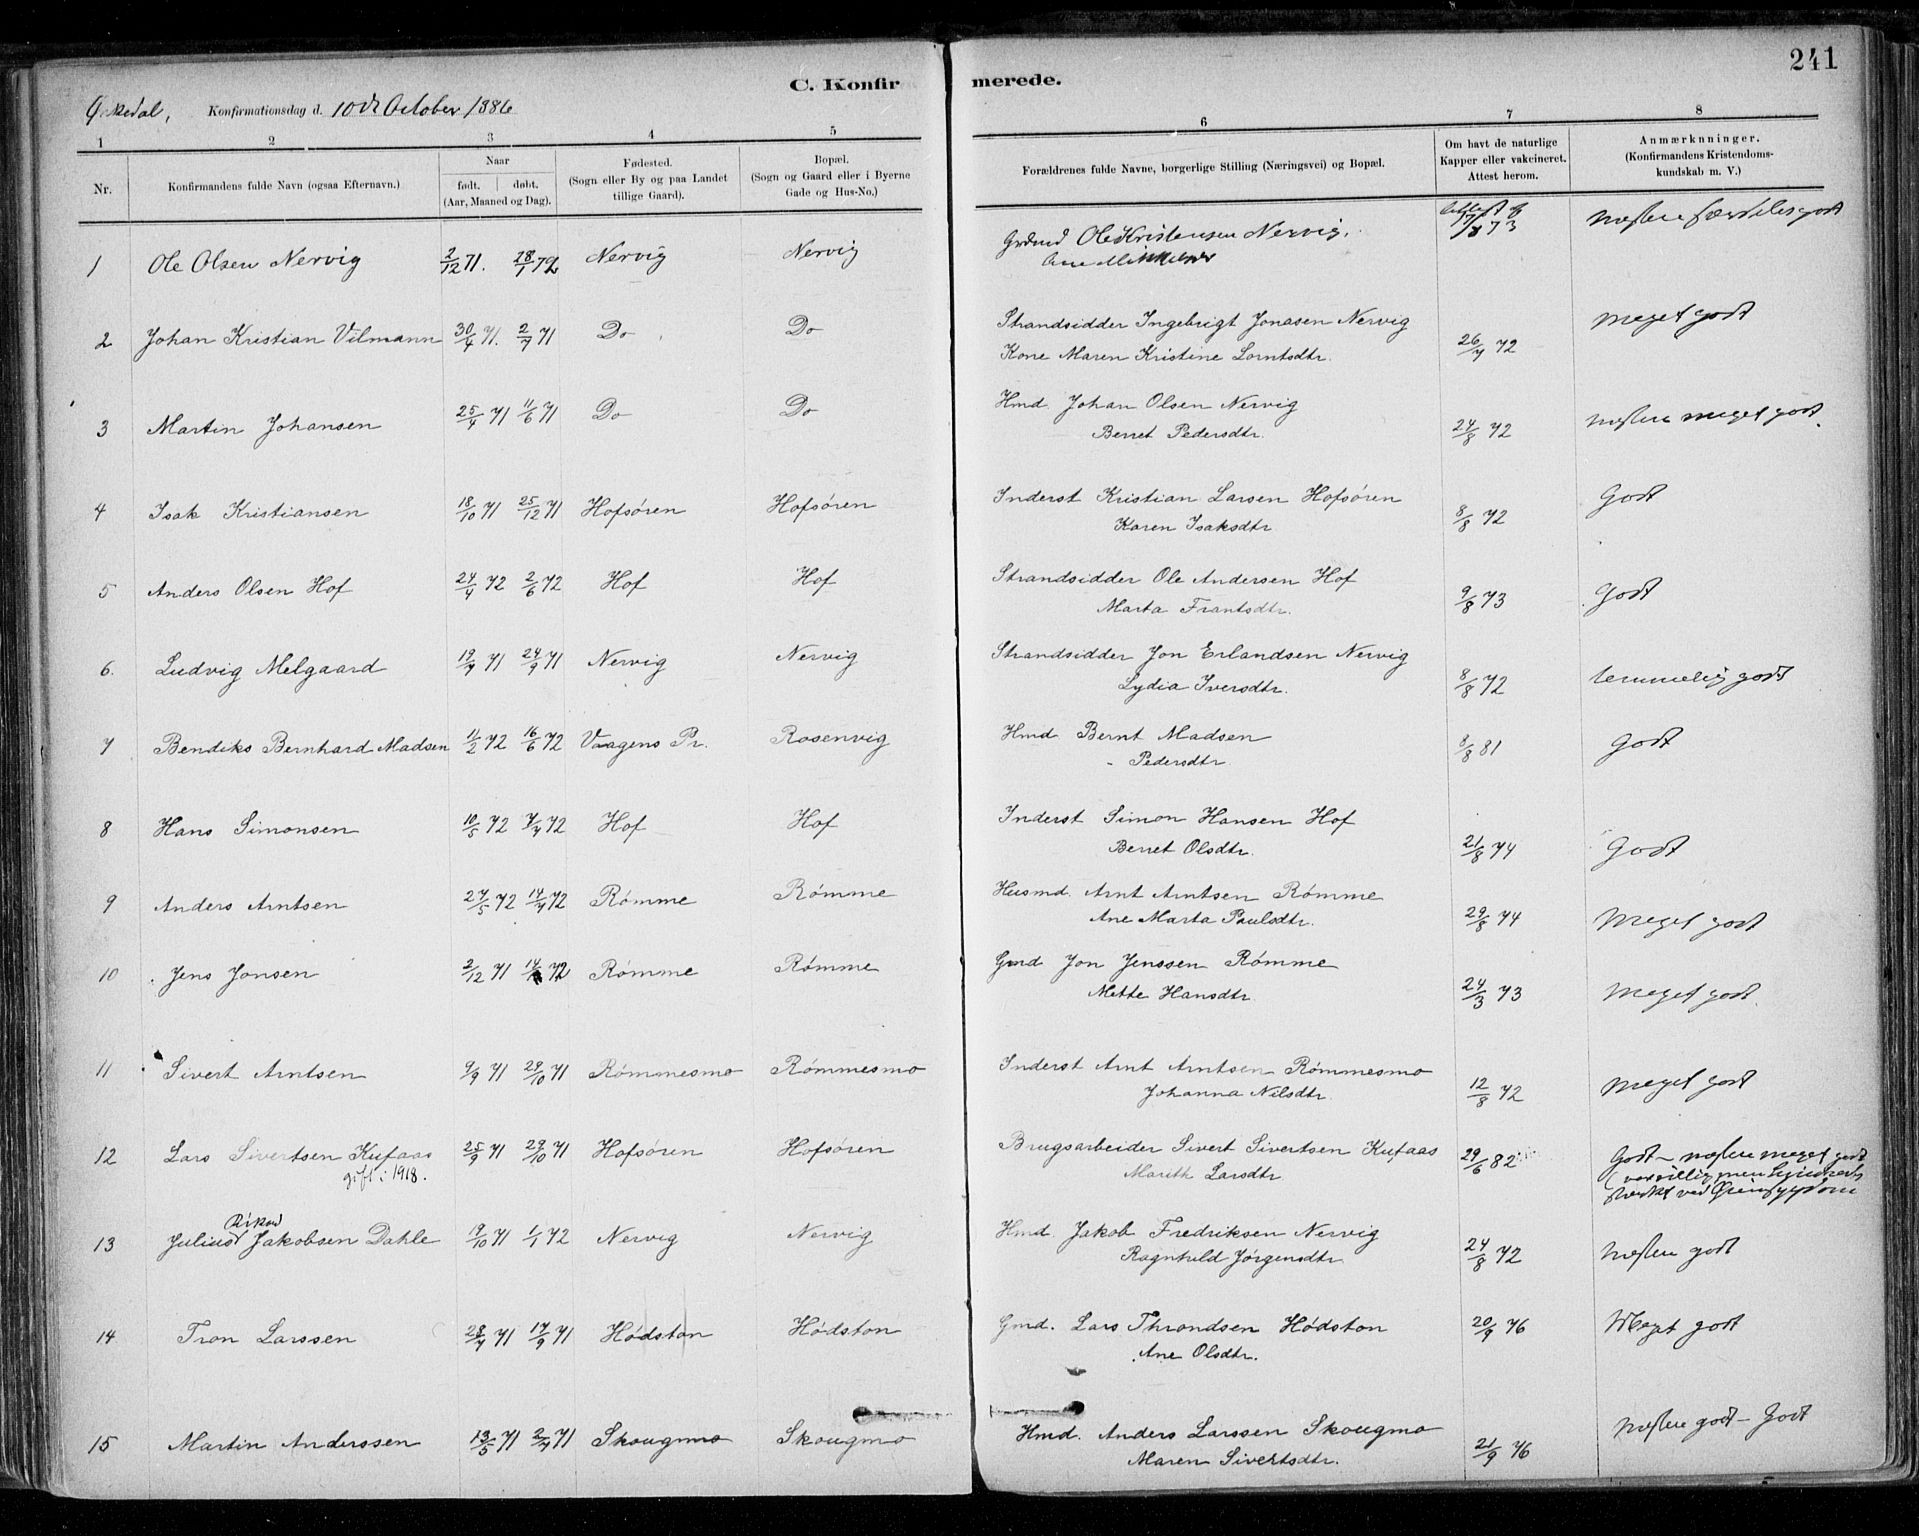 241
C. Konfirmerede.
Orkedal, Konfirmationsdag d. 10de October 1886
1 2 3 4 5 6 7 8
Nr. Konfirmandens fulde Navn (ogsaa Efternavn.) Naar født. døbt. (Aar, Maaned og Dag). Fødested. (Sogn eller By og paa Landet tillige Gaard). Bopæl. (Sogn og Gaard eller i Byerne Gade og Hus-No.) Forældrenes fulde Navne, borgerlige Stilling (Næringsvei) og Bopæl. Om havt de naturlige Kapper eller vakcineret. Attest herom. Anmærknninger. (Konfirmandens Kristendomskundskab m. V.)
1 Ole Olsen Nervig 2/12 71. 28/1 72 Nervig Nervig Grdmd Ole Kristensen Nervig. 73
Ane
2 Johan Kristian Vilmann 30/4 71. 2/7 71 Do Do Strandsidder Ingebrigt Jonasen Nervig 26/7 72 meget godt
Kone Maren Kristine Lorntsdtr.
3 Martin Johansen 25/4 71 11/6 71 Do Do Hmd. Johan Olsen Nervig 24/8 72 næsten meget godt.
Berret Pedersdtr.
4 Isak Kristiansen 18/10 71 25/12 71 Hofsören Hofsören Inderst Kristian Larsen Hofsören 8/8 72 Godt
Karen Isaksdtr
5 Anders Olsen Hof 24/4 72 2/6 72 Hof Hof Strandsidder Ole Andersen Hof 9/8 73 Godt
Marta Frantsdtr.
6. Ludvig Melgaard 19/7 71 24/9 71 Nervig Nervig Strandsidder Jon Erlandsen Nervig 8/8 72 temmelig godt
Lydia Iversdtr.
7 Bendiks Bernhard Madsen 11/2 72 16/6 72 Vaagens Pr. Rosenvig Hmd Bernt Madsen 8/8 81 Godt
- Pedersdtr.
8 Hans Simonsen 10/5 72 7/7 72 Hof Hof Inderst Simon Hansen Hof 21/8 74 Godt
Berret Olsdtr.
9 Anders Arntsen 27/5 72 14/7 72 Römme Römme Husmd. Arnt Arntsen Römme 29/8 74 Meget godt
Ane Marta Paulsdtr.
10 Jens Jonsen 2/12 71 72 Römme Römme Gmd Jon Jenssen Römme 24/3 73 meget godt.
Mette Hansdtr
11 Sivert Arntsen 9/9 71 29/10 71 Römmesmo Römmesmo Inderst Arnt Arntsen Römmesmo 12/8 72 meget godt
Johanna Nilsdtr.
12 Lars Sivertsen Kufaas 25/9 71 29/10 71 Hofsören Hofsören Brugsarbeider Sivert Sivertsen Kufaas 29/6 82 Godt - næsten meget godt
gift i 1918. Marith Larsdtr men ved
13 Julius Rikard Jakobsen Dahle 19/10 71 1/1 72 Nervig Nervig Hmd. Jakob Fredriksen Nervig 24/8 72 næsten godt
Ragnhild Jörgensdtr
14 Tron Larssen 28/7 71 17/9 71 Hödston Hödston Gmd. Lars Throndsen Hödston 20/9 76 Meget godt
Ane Olsdtr.
15 Martin Anderssen 13/5 71 2/7 71 Skougmo Skougmo Hmd. Anders Larssen Skougmo 21/9 76 næsten godt - Godt
Maren Sivertsdtr.